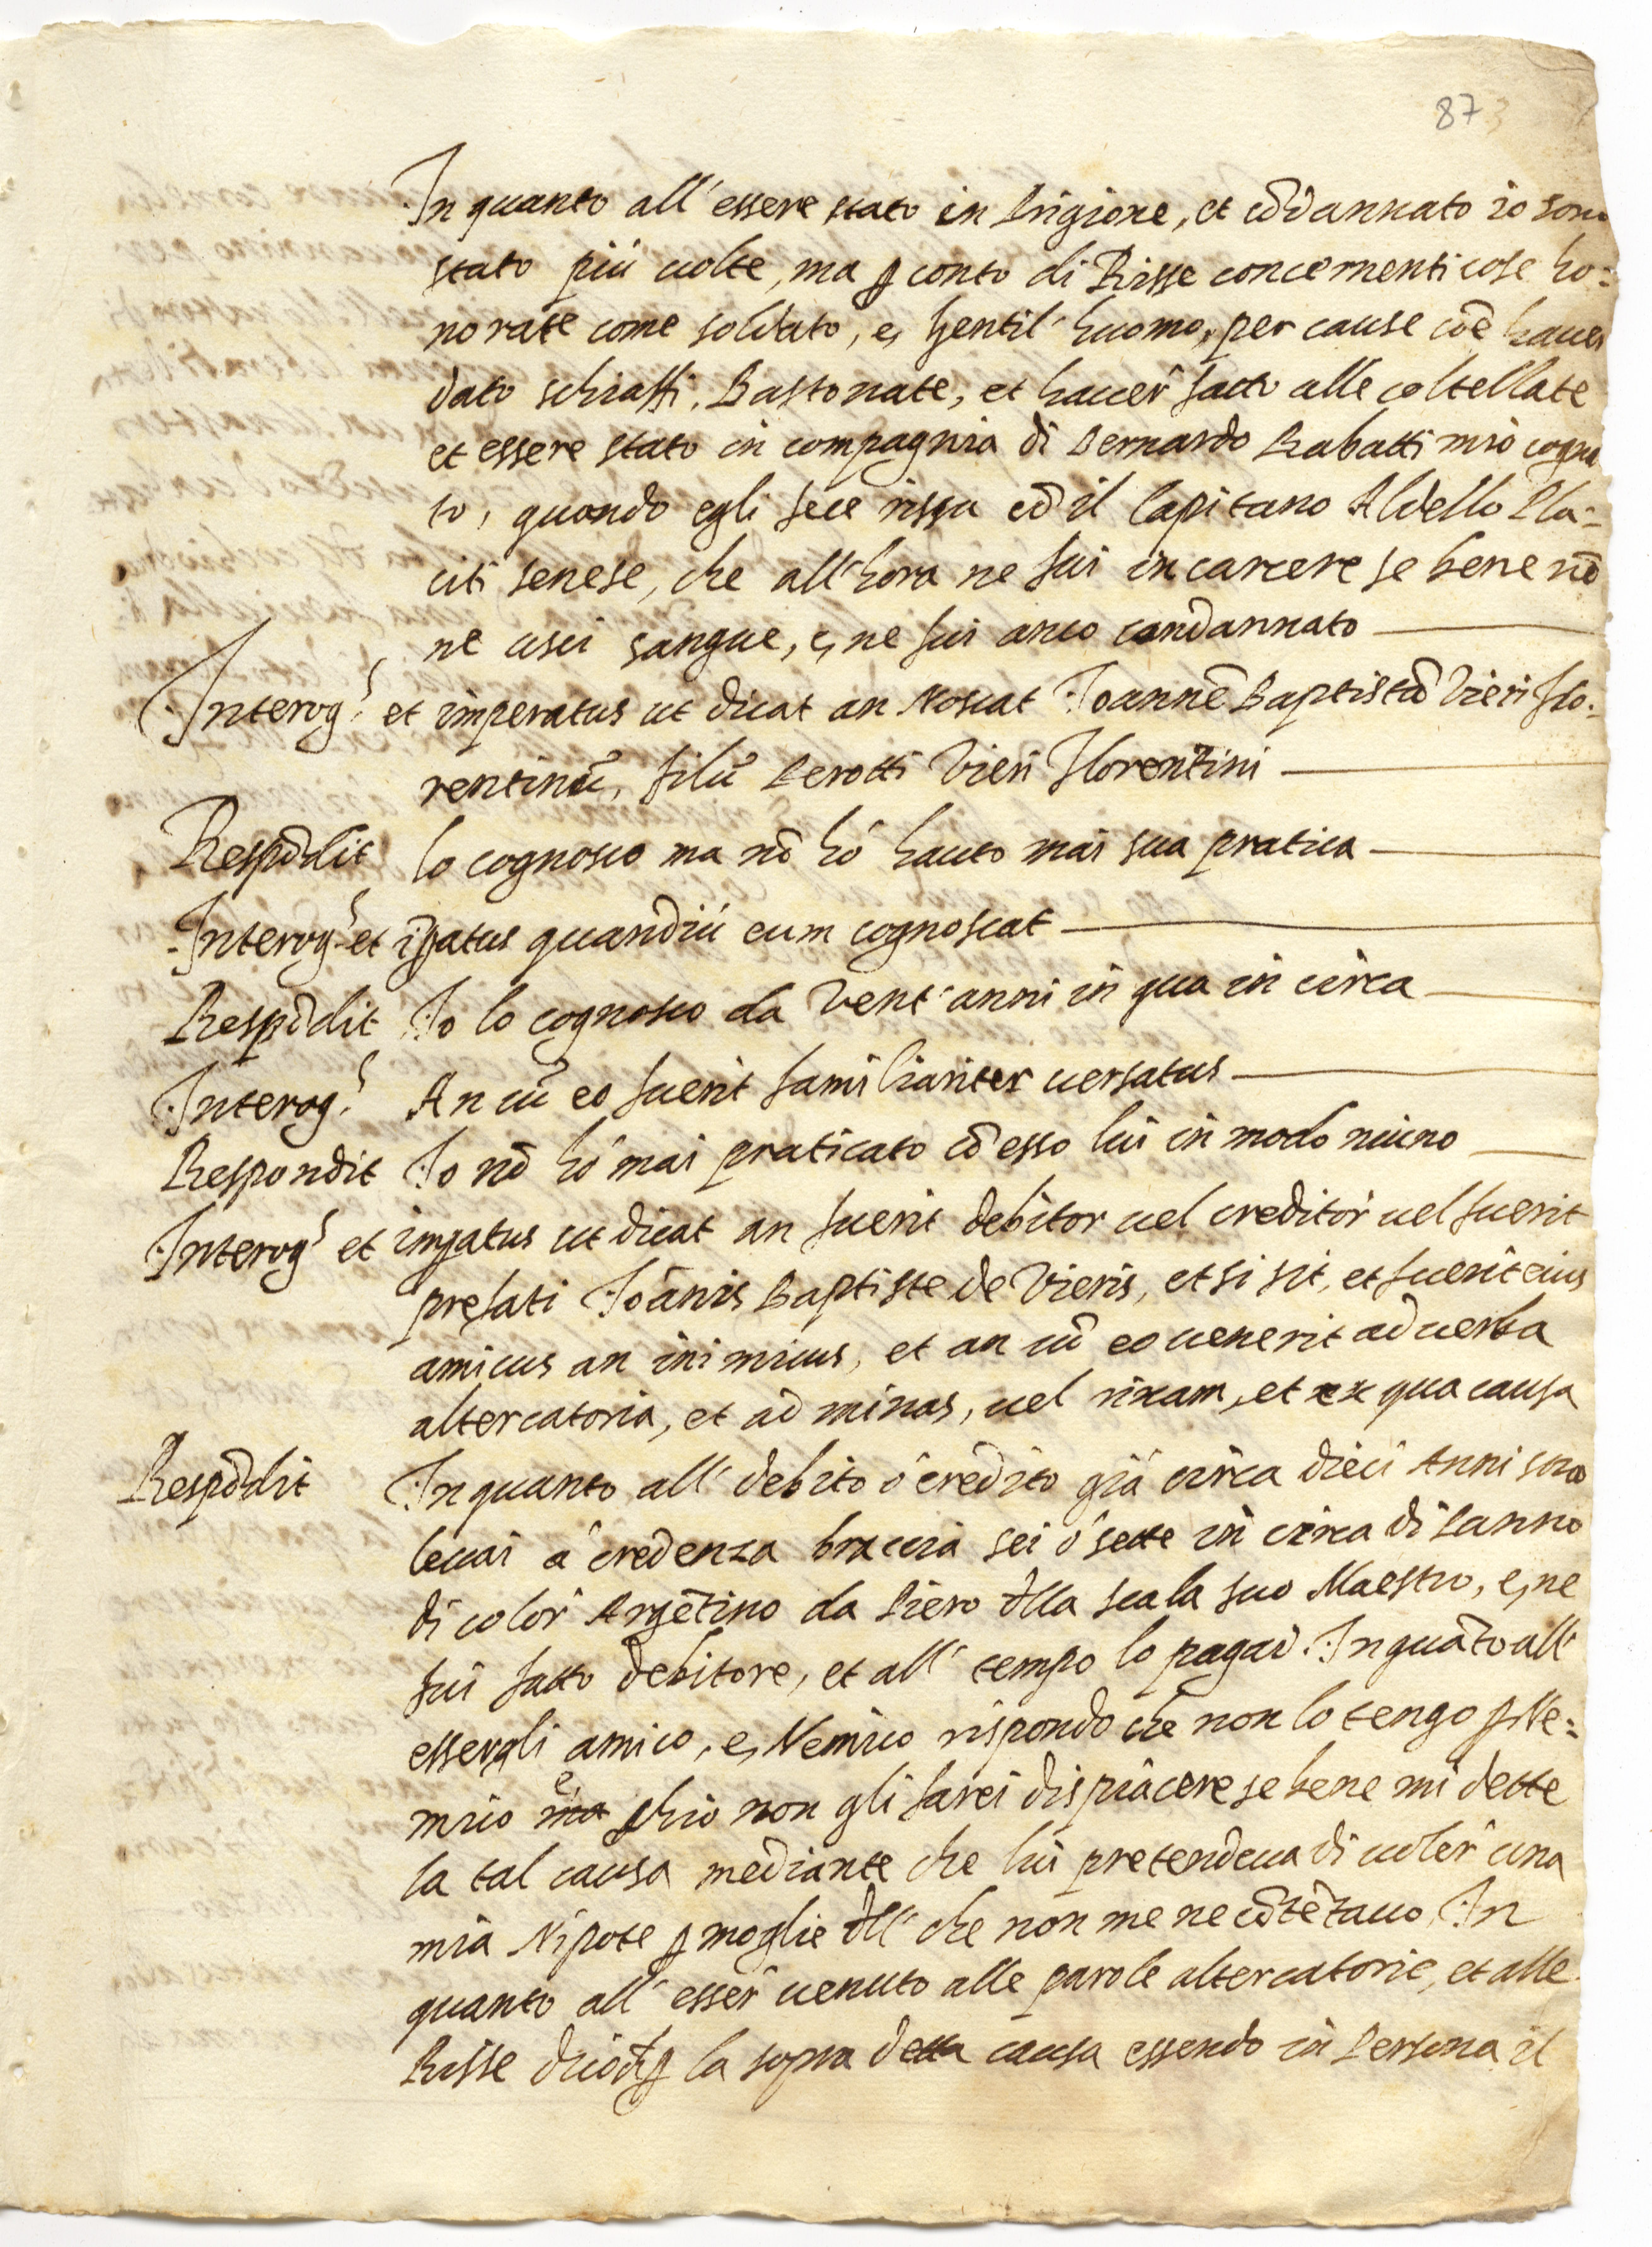 87
In quanto all' essere stato in Prigione, et cōdannato io sono
stato più uolte, ma ꝑ conto di Risse concernenti cose ho=
norate come soldato, e, gentil' huomo, per cause cōe hauer
dato schiaffi, Bastonate, et hauer fatto alle coltellate
et essere stato in compagnia di Bernardo Rabatti mio cogna
to, quando egli fece rissa cō il Capitano Aldello Pla=
citi senese, che all' hora ne fui in carcere se bene nō
ne usci sangue, e, ne fui anco condannato
Interog.s et imperatus ut dicat an Noscat Joannē Baptistā Vieri Flo=
rentinū, filiū Perotti Vieri Florentini
Respōdit lo cognosco ma nō hó hauto mai sua pratica
Interog.s et iꝑatus quandiú eum cognoscat
Respōdit Io lo cognosco da Vent' anni in qua in circa
Interog.s An cū eo fuerit familiariter uersatus
Respondit Io nō hó mai praticato cō esso lui in modo niuno
Interog.s et imꝑatus ut dicat an fuerit debitor uel creditor uel fuerit
prefati Joānis Baptiste de Vieris, et si sit, et fuerit eius
amicus an inimicus, et an cū eo uenerit ad uerba
altercatoria, et ad minas, uel rixam, et ex qua causa
Respōdit In quanto all' debito ó credito giá circa dieci Anni sono
leuai á credenza braccia sei ó sette in circa di Panno
di color Argētino da Piero d̄lla scala suo Maestro, e, ne
fui fatto debitore, et all' tempo lo pagai. In quāto all'
essergli amico, e, Nemico rispondo che non lo tengo ꝑ Ne=
mico e ma ꝑchio non gli farei dispiacere se bene mi dette
la tal causa mediante che lui pretendeua di uoler una
mia Nipote ꝑ moglie d̄ll' che non me ne cōtētauo In
quanto all' esser uenuto alle parole altercatorie, et alle
Risse dico ꝑ la sopra detta causa essendo in Persona il